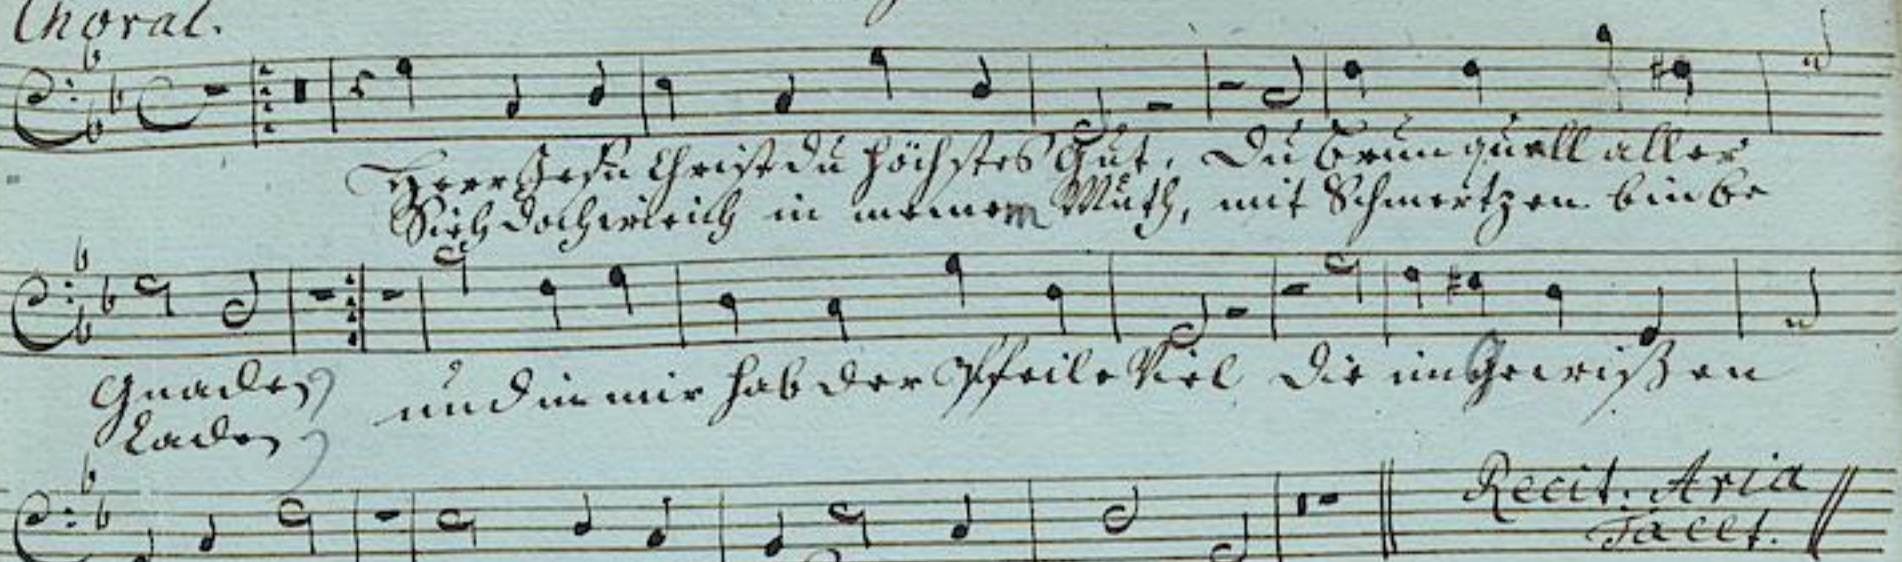 Choral.
Herr Jesu Christ du höchstes Gut, Du brunquell aller
Sieh doch wie ich in meinem Muth, mit Schmertzen bin be
Gnaden
Laden
und in mir hab der Pfeile Viel die im Gewißen
Recit. Aria
Tacet.